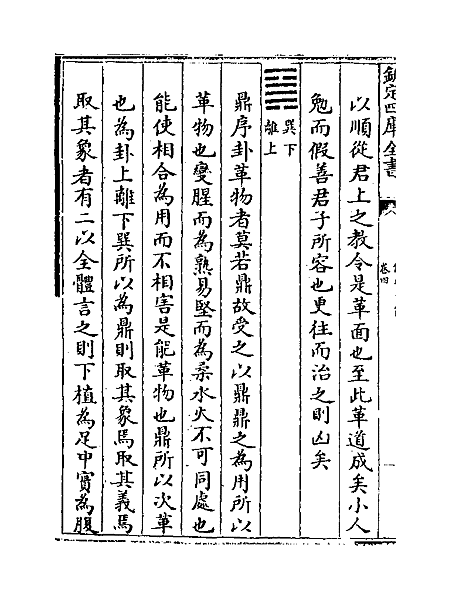 欽定四庫全書
卷四
以順從君上之教令是革面也至此革道成矣小人
勉而假善君子所容也更往而治之則凶矣
巽下
離上
鼎序卦革物者莫若鼎故受之以鼎鼎之為用所以
革物也變腥而為熟易堅而為柔水火不可同處也
能使相合為用而不相害是能革物也鼎所以次革
也為卦上離下巽所以為鼎則取其象焉取其義焉
取其象者有二以全體言之則下植為足中實為腹